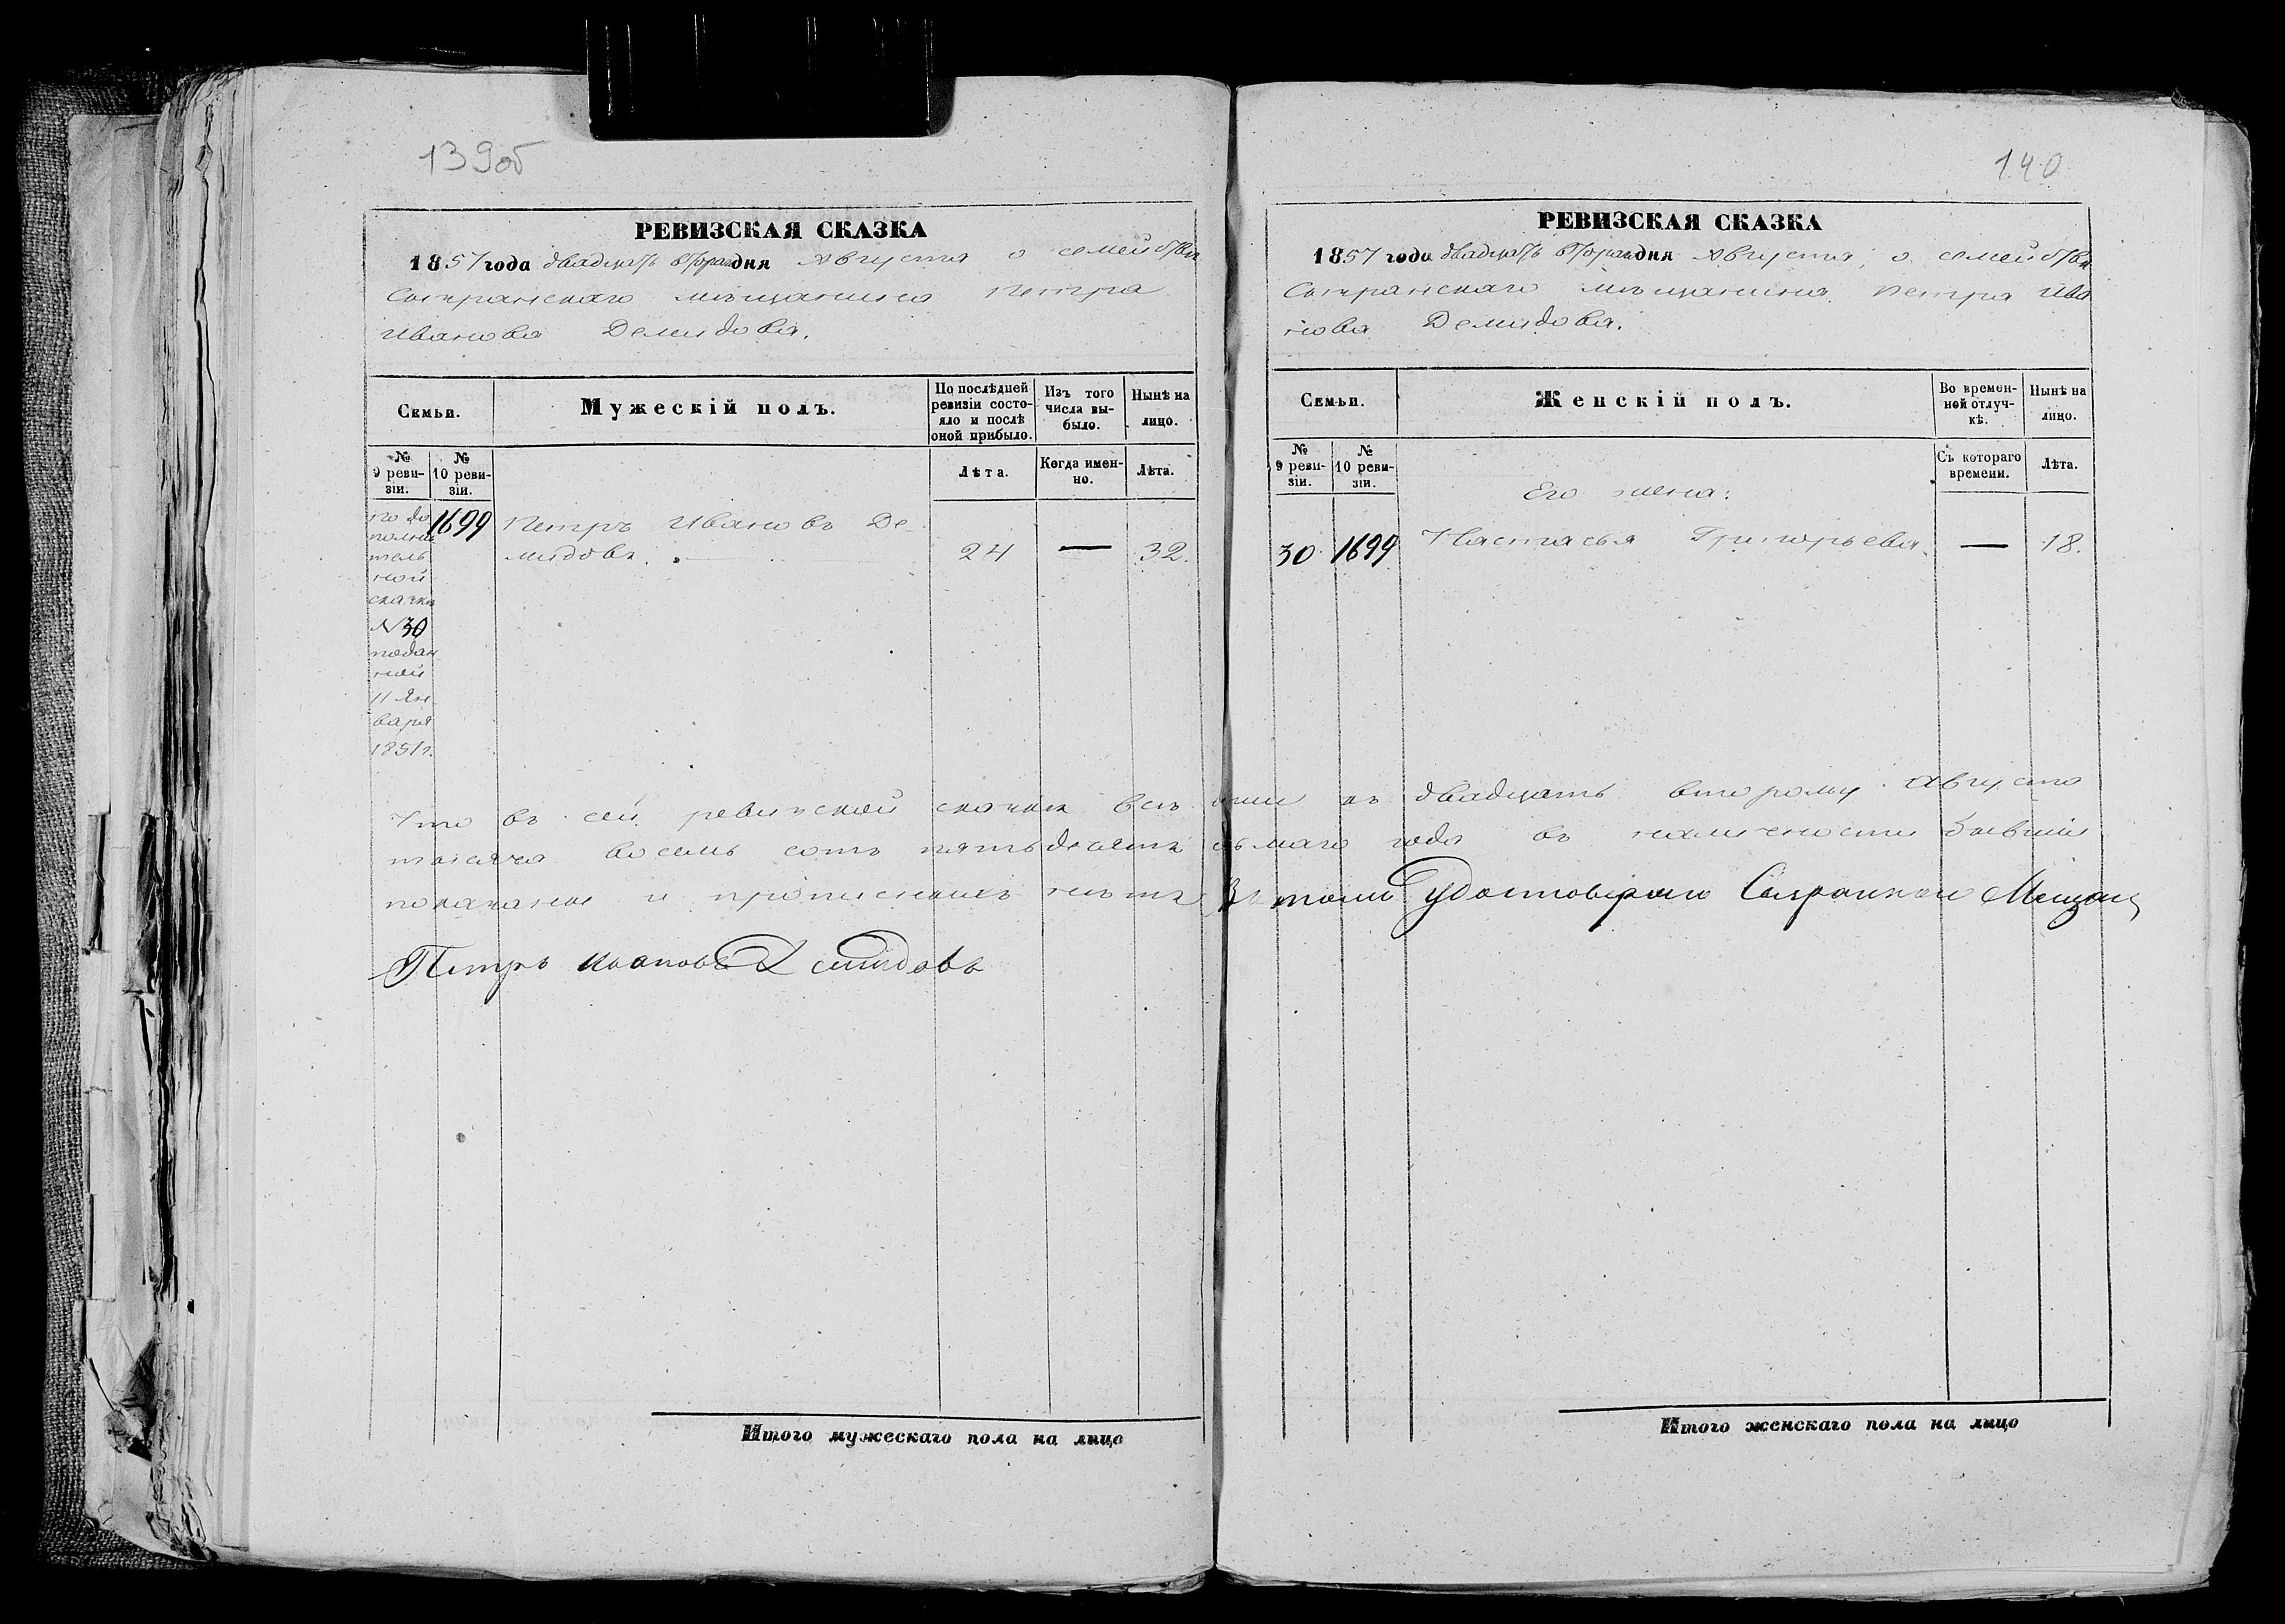 139об
РЕВИЗСКАЯ СКАЗКА
1857 года двадцать втораго дня Августа о семействѣ
Сызранскаго мѣщанина Петра
Иванова Демидова.
Семьи.
Мужескій полъ.
По послѣдней ревизіи состояло и послѣ оной прибыло.
Изъ того числа выбыло.
Нынѣ на лицо.
№ 9 ревизіи.
№ 10 ревизіи.
Лѣта.
Когда именно.
Лѣта.
по до
полни
тель
ной
сказки
№ 30
подан
ной
11 Ян
варя
1851 г.
1699
Петръ Ивановъ Де-
мидовъ.
24
—
32.
Что въ сей ревизской сказкѣ всѣ души къ двадцать второму Августа
тысяча восемь сотъ пятьдесятъ седьмаго года въ наличности бывшіе
показаны и прописныхъ нѣтъ Въ томъ удостоверяю Сызранской Мещан
Петръ Ивановъ Демидовъ
Итого мужескаго пола на лицо
140
РЕВИЗСКАЯ СКАЗКА
1857 года двадцать втораго дня Августа, о семействѣ
Сызранскаго мѣщанина Петра Ива
нова Демидова.
Семьи.
Женскій полъ.
Во времен-
ной отлуч-
кѣ.
Нынѣ на
лицо.
№ 9 ревизіи.
№ 10 ревизіи.
Съ котораго
времени.
Лѣта.
Его жена:
30. 1699 Настасья Григорьева. — 18.
Итого женскаго пола на лицо